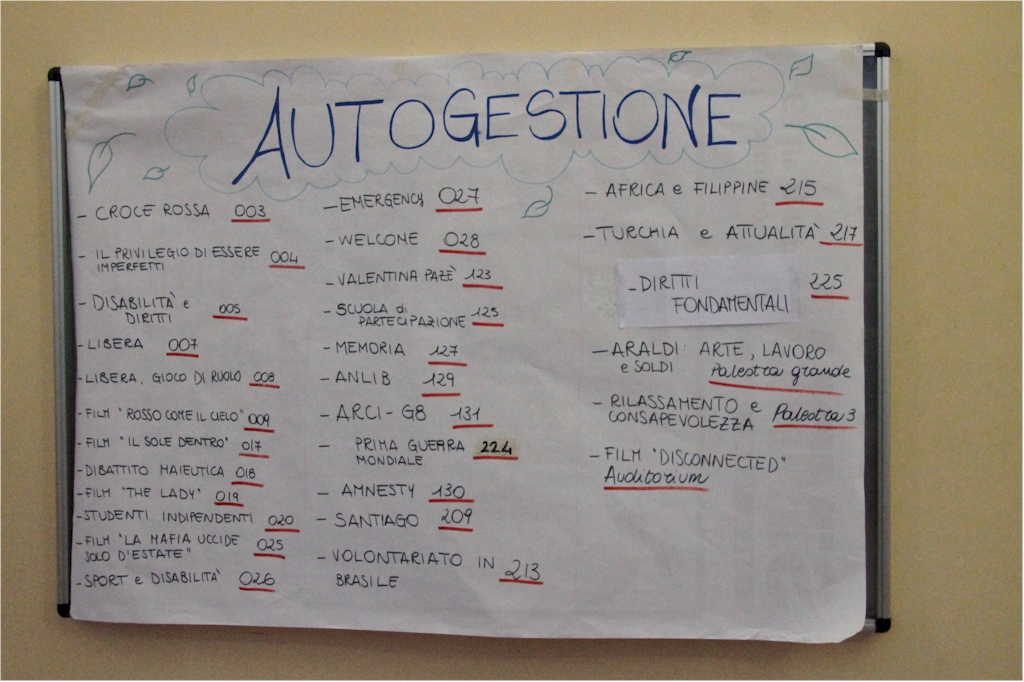 AUTOGESTIONE
- CROCE ROSSA 003
- IL PRIVILEGIO DI ESSERE
IMPERFETTI 004
- DISABILITÀ e
DIRITTI 005
- LIBERA 007
- LIBERA. GIOCO DI RUOLO 008
- FILM "ROSSO COME IL CIELO" 009
- FILM "IL SOLE DENTRO" 017
- DIBATTITO MAIEUTICA 018
- FILM "THE LADY" 019
- STUDENTI INDIPENDENTI 020
- FILM "LA MAFIA UCCIDE
SOLO D'ESTATE" 025
- SPORT e DISABILITÀ 026
- EMERGENCY 027
- WELCOME 028
- VALENTINA PAZÈ 123
- SCUOLA di
PARTECIPAZIONE 125
- MEMORIA 127
- ANLIB 129
- ARCI-G8 131
- PRIMA GUERRA
MONDIALE 224
- AMNESTY 130
- SANTIAGO 209
- VOLONTARIATO IN
BRASILE 213
- AFRICA e FILIPPINE 215
- TURCHIA e ATTUALITÀ 217
- DIRITTI
FONDAMENTALI 225
- ARALDI: ARTE, LAVORO
e SOLDI Palestra grande
- RILASSAMENTO e
CONSAPEVOLEZZA Palestra 3
- FILM "DISCONNECTED"
Auditorium